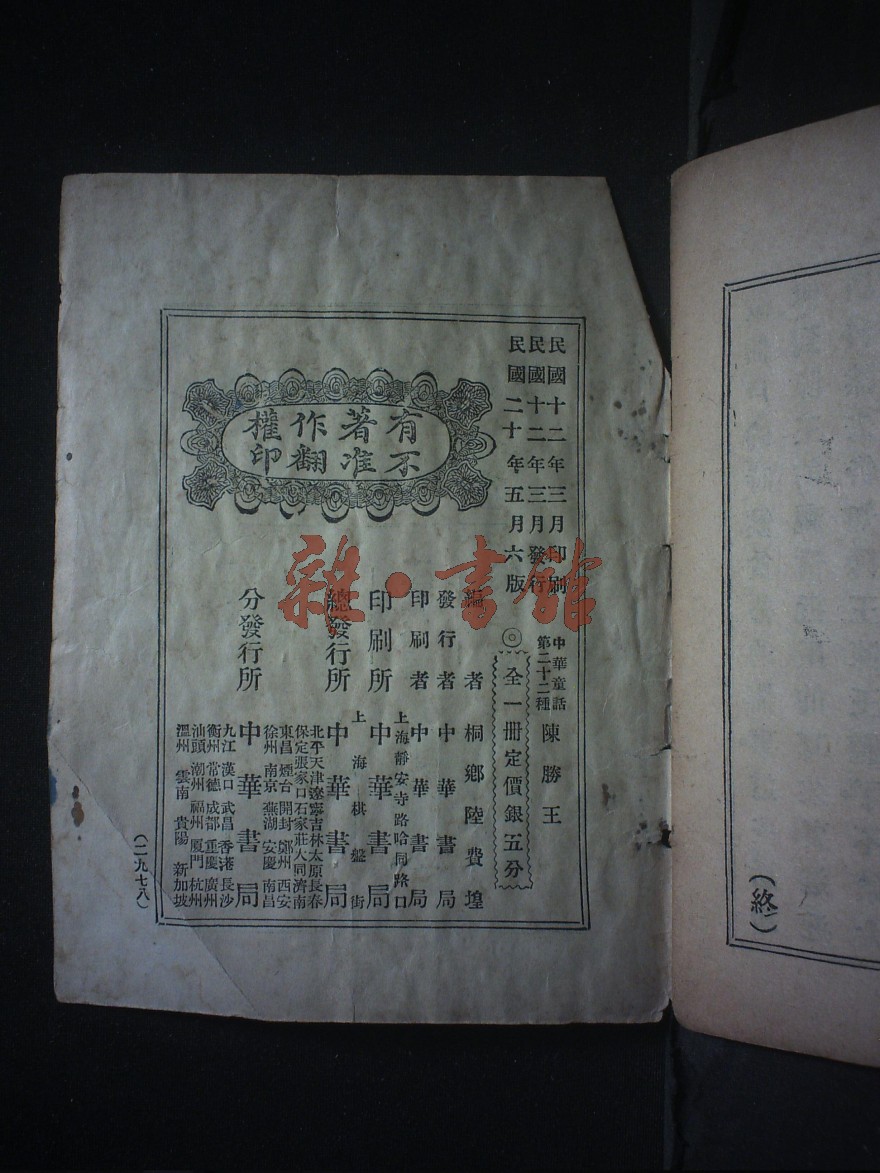 民國十二年三月印刷
民國十二年三月發行
民國二十年五月六版
中華童話
第二十二種
陳勝王
◎
全一冊定價銀五分
有著作權
不准翻印
編者 桐鄉陸費堭
發行者 中華書局
印刷者 中華書局
上海靜安寺路哈同路口
印刷所 中華書局
上海棋盤街
總發行所 中華書局
北平 天津 遼寧 吉林 太原 長春
保定 張家口 石家莊 大同 濟南
東昌 煙台 開封 鄭州 西安
徐州 南京 蕪湖 安慶 南昌
分發行所 中華書局
九江 漢口 武昌 香港 長沙
衡州 常德 成都 重慶 廣州
汕頭 潮州 福州 厦門 杭州
溫州 雲南 貴陽 新加坡
(二九七八)
(終)
雜·書館